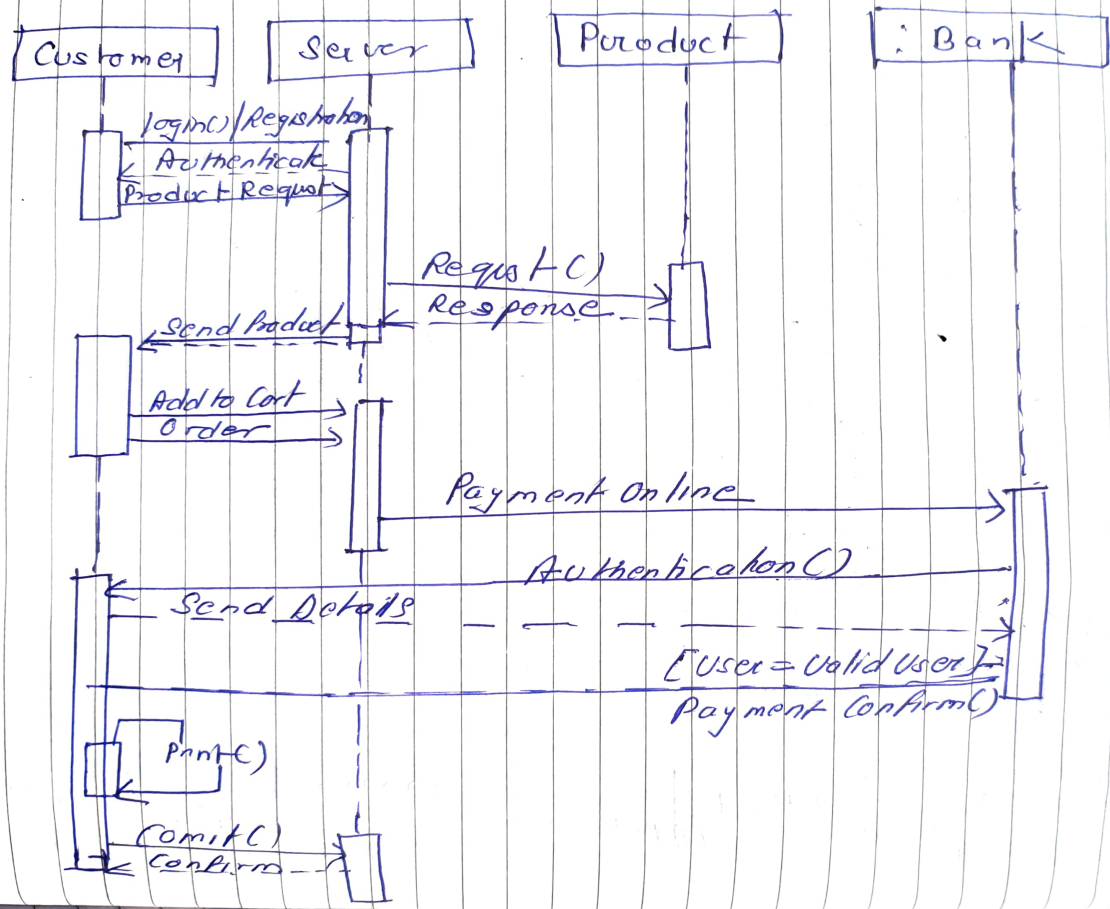 Customer
Server
Product
: Bank
login()/Registration
Authenticate
Product Request
Request()
Response
Send Product
Add to Cart
Order
Payment Online
Authentication()
Send Details
[User = Valid User]
Payment Confirm()
Print()
Comit()
Confirm